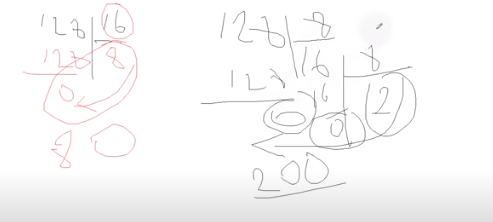 128 16
128 8
0
80
128 8
128 16 8
16 2
0 0
200